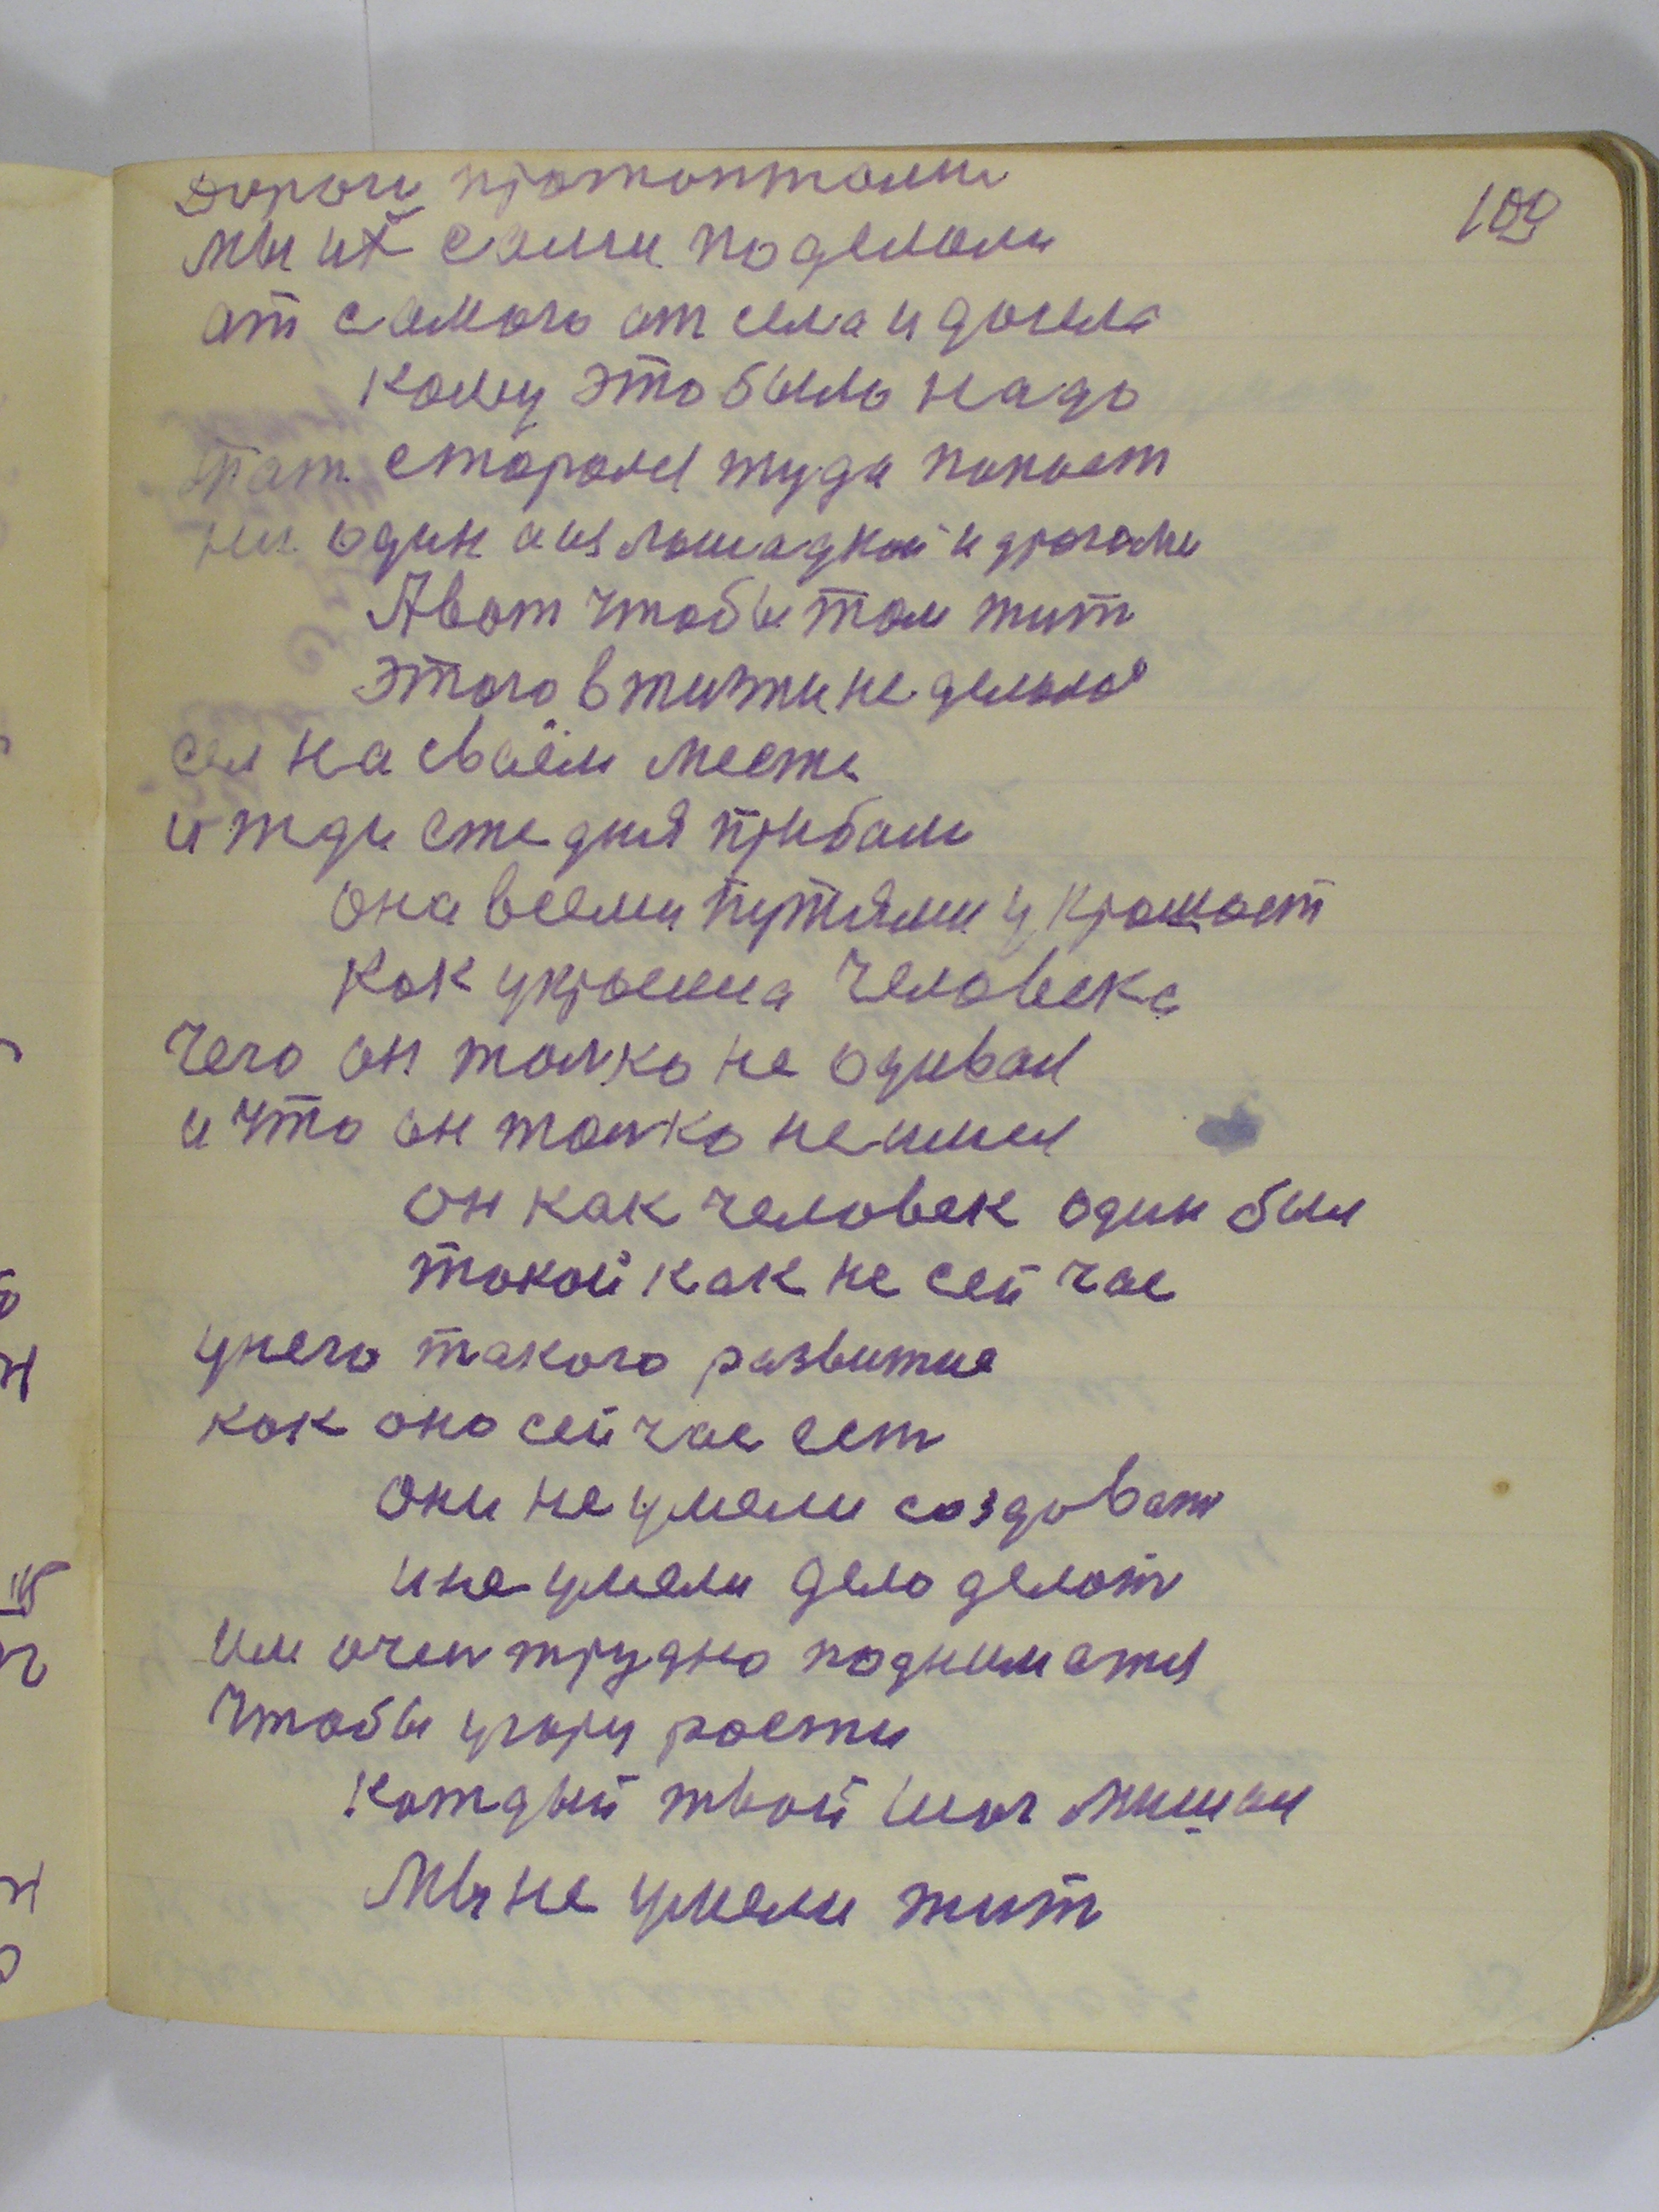 109
Дороги протоптали
мы их сами поделали
ат самого от села и до села
Кому это было надо
старался туда попаст
ни один а из лошадкой и дрогами
А вот чтобы там жит
Этого в жизни не делал
сел на сваём месте
и жди сте дня прибали
она всеми путями украшает
Как украсила человека
Чего он толко не одивал
и что он толко не имел
он как человек один был
такой как не сей час
у него такого развитие
как оно сей час ест
Они не умели создоват
и не умели дело делат
им очен трудно подниматся
Чтобы угору расти
Каждый твой шаг мишал
Мы не умели жит